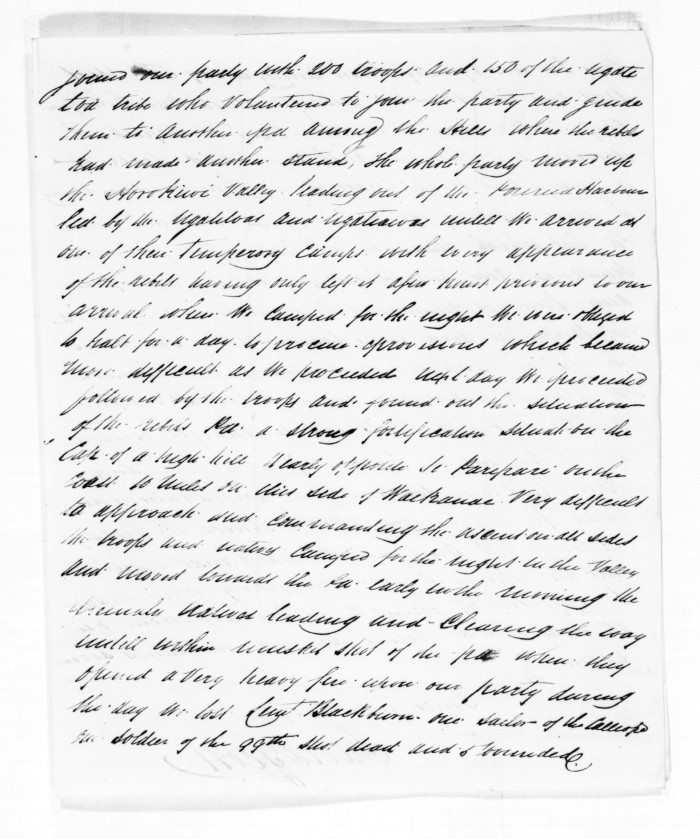 joined our party with 200 troops and 150 of the ngate
toa tribe who Volentered to join the party and guide
them to another pa among the Hills where the rebels
had made another stand, the whole party moved up
the Horokiwi Valley leading out of the Porerua Harbour
led by the Ngatitoas and Ngatiawas untill We arrived at
one of their temperory Camps with every appearance
of the rebels having only left it a few hours previous to our
arrival when We Camped for the night We were obliged
to halt for a day to procure provisions which became
more difficult as We proceeded next day We proceeded
followed by the troops and found out the situation
of the rebels Pa a strong fortification situat on the
Cap of a high hill Nearly oposite to Paripari on the
Coast 10 miles on this side of Waekanae Very difficult
to approach and commanding the ascent on all sides
the troops and natives Camped for the night in the Valley
and moved towards the Pa early in the morning the
natives leading and Clearing the way
untill within musket shot of the pa when they
opened a Very heavy fire upon our party during
the day We lost Leut Blackburn one sailor of the Calliope
one soldier of the 99th shot dead and 5 wounded